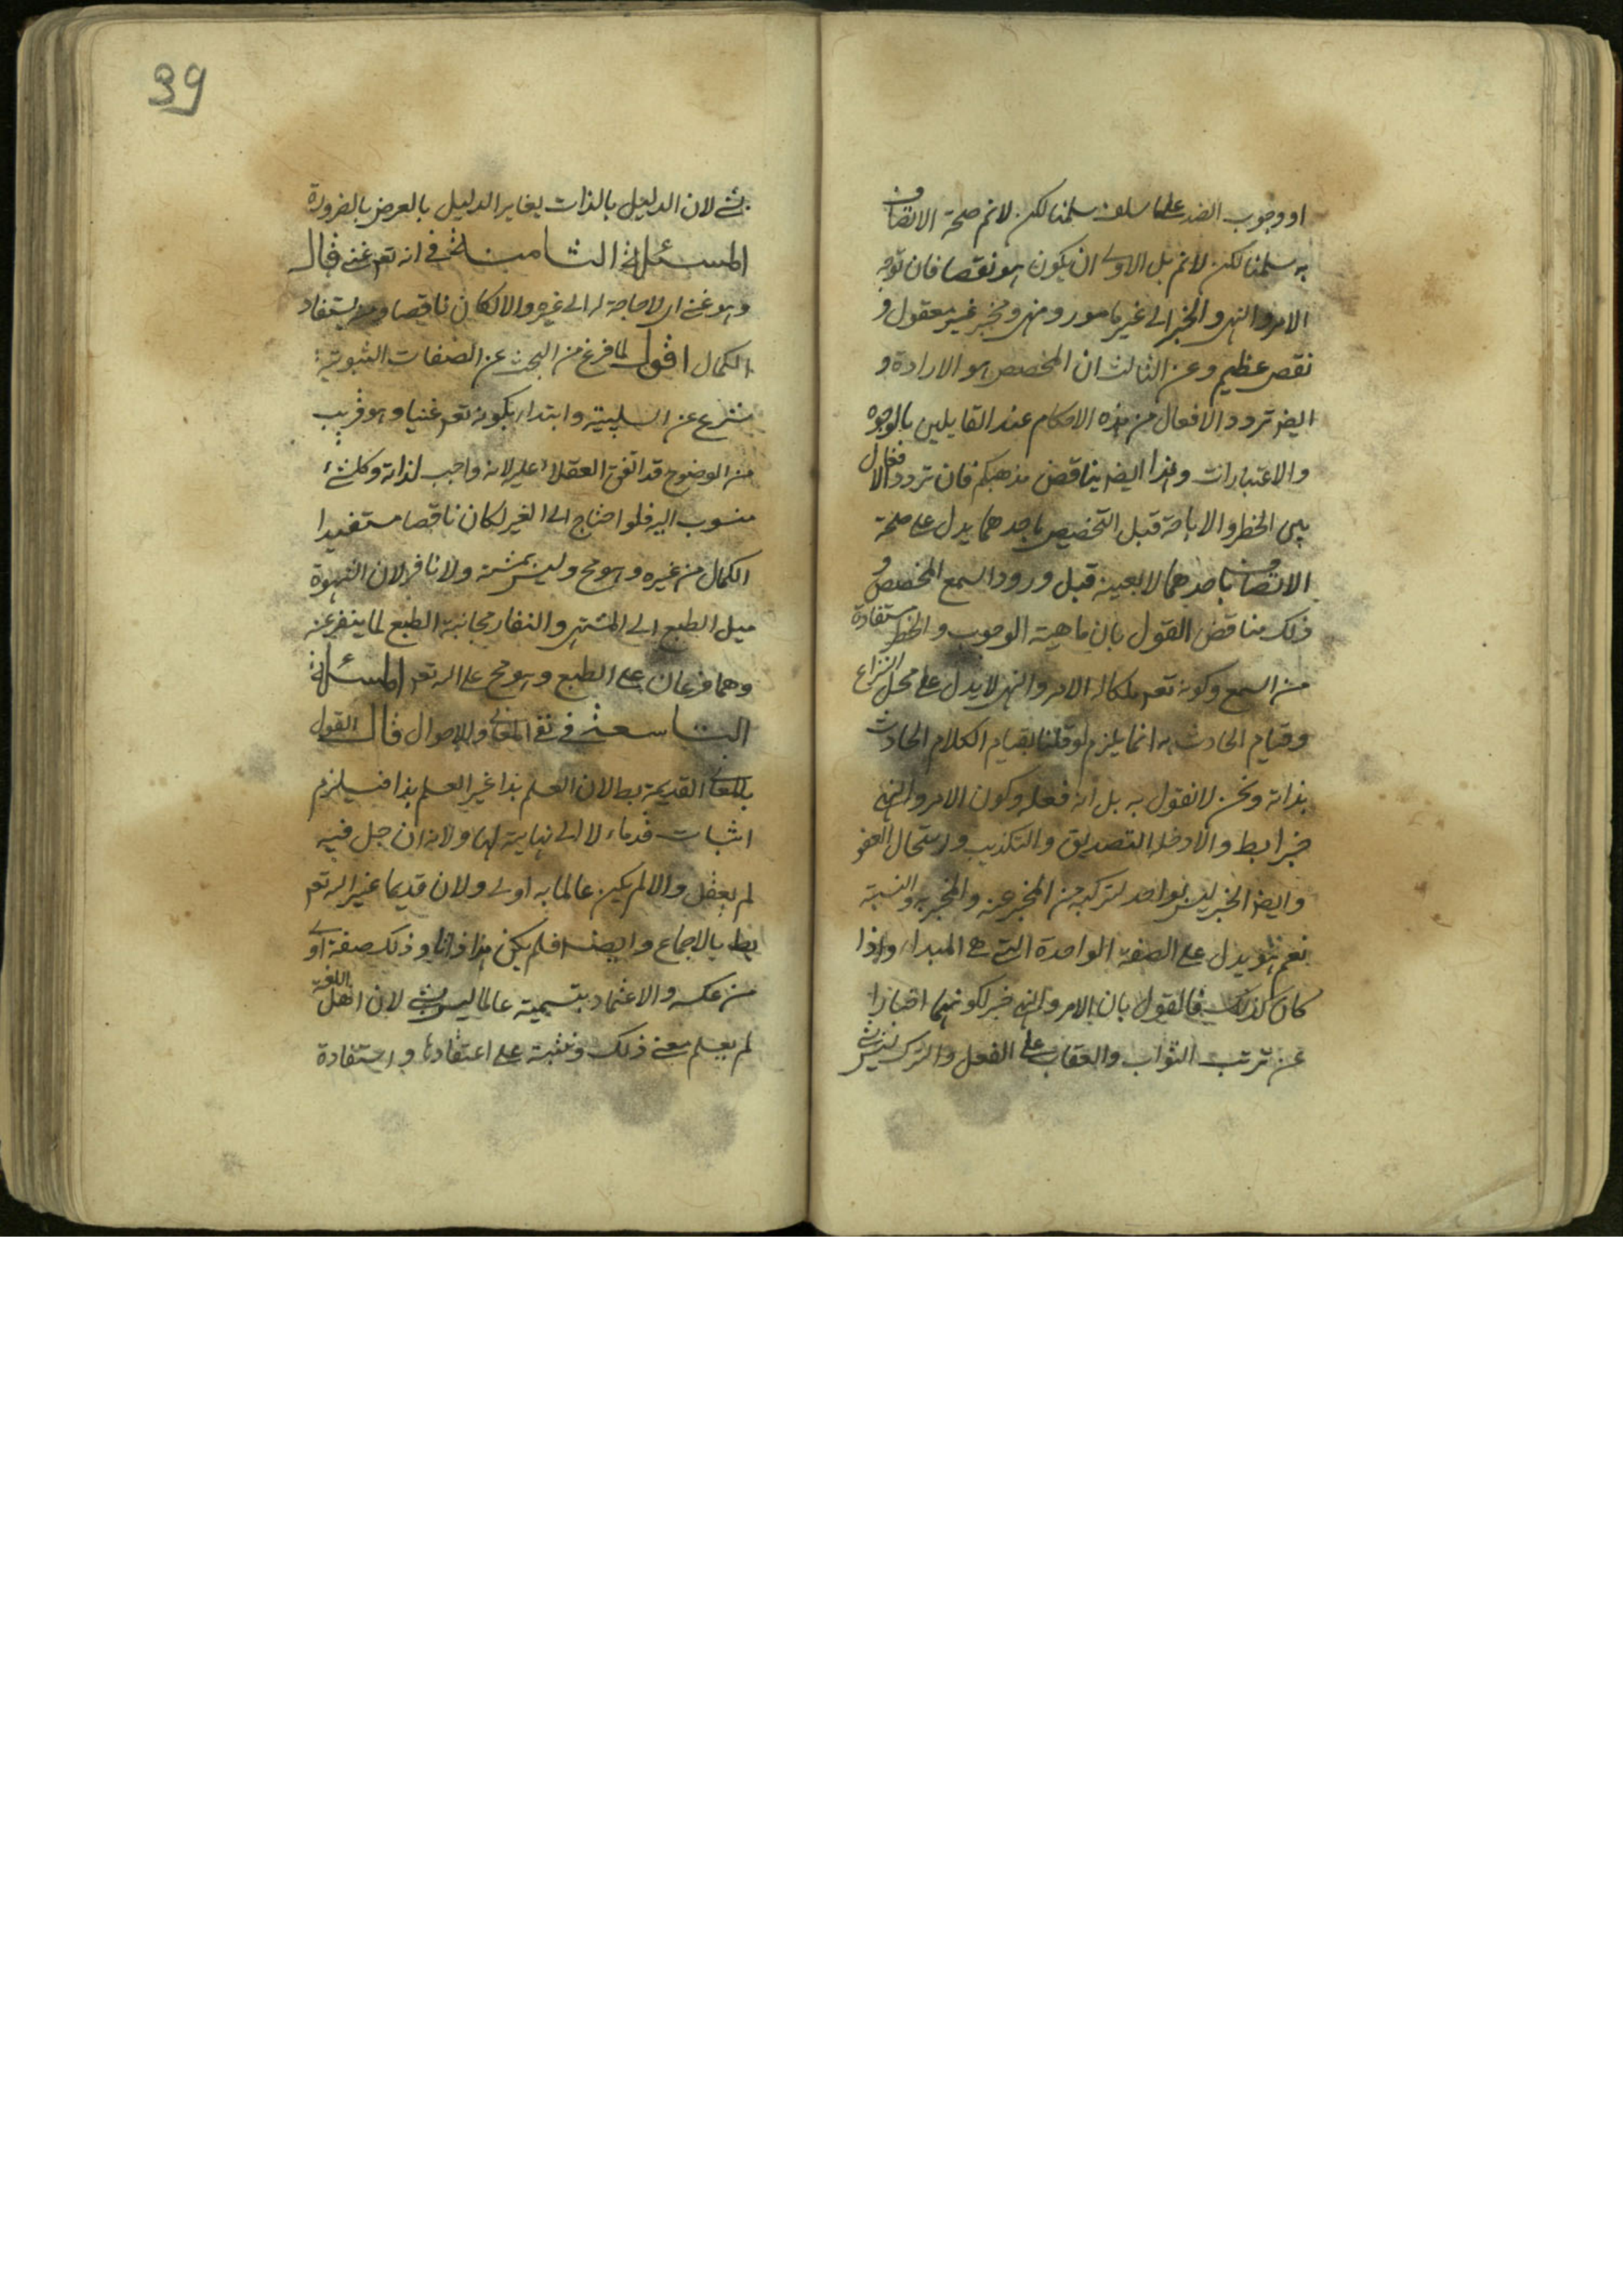 او وجوب الضد على ما سلف سلمنا لكن لا نم صحة الاتصاف
به سلمنا لكن لا نم بل الاولى ان يكون هو نقصا فان توجه
الامر والنهى والخبر الى غير مامور ومنهى ومخبر غير معقول و
نقص عظيم وعن الثالث ان المخصص هو الارادة و
ايض تردد الافعال من هذه الاحكام عند القايلين بالوجوه
والاعتبارات وهذا ايض يناقض مذهبكم فان تردد الافعال
بين الحظر والاباحة قبل التخصيص باحدهما يدل على صحة
الاتصاف باحدهما لا بعينه قبل ورود السمع المخصص و
ذلك مناقض القول بان ماهية الوجوب والحظر مستفادة
من السمع وكونه تعم ملكا له الامر والنهى لا يدل على محل النزاع
وقيام الحادث به انما يلزم لو قلنا بقيام الكلام الحادث
بذاته ونحن لا نقول به بل انه فعله وكون الامر والنهى
خبرا بط والا دخله التصديق والتكذيب ولاستحال العفو
وايض الخبر ليس بواحد لتركبه من المخبر عنه والمخبر به والنسبة
نعم هو يدل على الصفة الواحدة التى هى المبدا واذا
كان كذلك فالقول بان الامر والنهى خبر لكونهما اخبارا
عن ترتب الثواب والعقاب على الفعل والترك ليس بشئ
بشئ لان الدليل بالذات يغاير الدليل بالعرض بالضرورة
المسئلة الثامنة فى انه تعم غنى قال
وهو غنى اى لا حاجة له الى غيره والا لكان ناقصا ومستفاد
الكمال اقول لما فرغ من البحث عن الصفات الثبوتية
شرع عن السلبية وابتداء بكونه تعم غنيا وهو قريب
من الوضوح قد اتفق العقلاء عليه لانه واجب لذاته وكل شئ
منسوب اليه فلو احتاج الى الغير لكان ناقصا مستفيدا
الكمال من غيره وهو مح وليس بمشته ولا نافر لان الشهوة
ميل الطبع الى المشتهى والنفار مجانبة الطبع لما ينفر عنه
وهما فرعان على الطبع وهو مح على اله تعم المسئلة
التاسعة فى نفى المعانى والاحوال قال القول
بالمعانى القديمة بط لان العلم بذا غير العلم بذا فيلزم
اثبات قدماء لا الى نهاية لها ولانه ان جل فيه
لم يعقل والا لم يكن عالما به اولى ولان قديما غير اله تعم
بط بالاجماع وايضا فلم يكن هذا ذاتا وذلك صفة اولى
من عكسه والاعتماد بتسمية عالما ليس بشئ لان اهل اللغة
لم يعلم معنى ذلك وتثبته على اعتقادها واستفادة